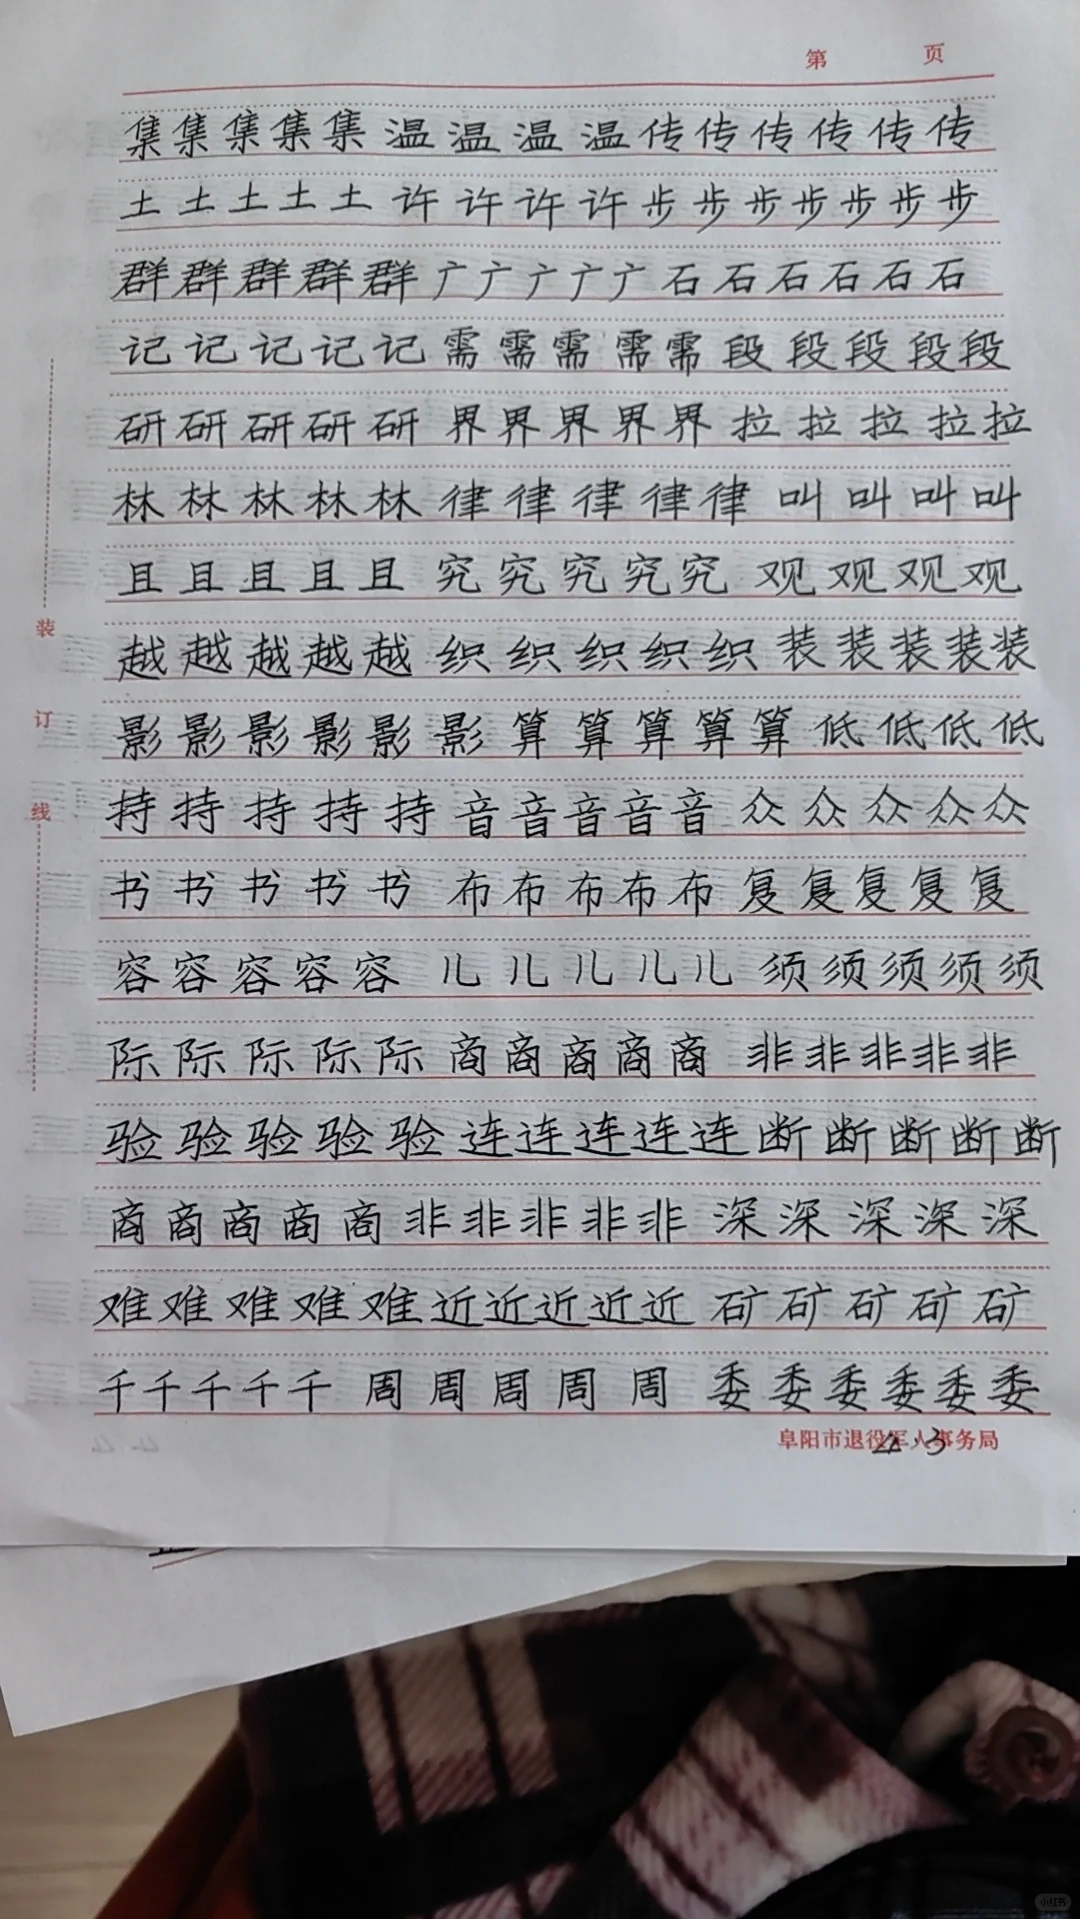 第 页
集集集集集 温温温温传传传传传传
土土土土土 许许许许步步步步步步步
群群群群群广广广广广石石石石石石
记记记记记 需需需需需 段段段段段
研研研研研 界界界界界 拉拉拉拉拉
林林林林林 律律律律律 叫叫叫叫
且且且且且 究究究究究 观观观观
越越越越越 织织织织织 装装装装装
影影影影影影算算算算算 低低低低
持持持持持 音音音音音 众众众众众
书书书书书 布布布布布 复复复复复
容容容容容 儿儿儿儿儿 须须须须须
际际际际际 商商商商商 非非非非非
验验验验验 连连连连连断断断断断
商商商商商 非非非非非 深深深深深
难难难难难近近近近近 矿矿矿矿矿
千千千千千 周周周周周 委委委委委委
装
订
线
阜阳市退役军人事务局
4.3
小红书